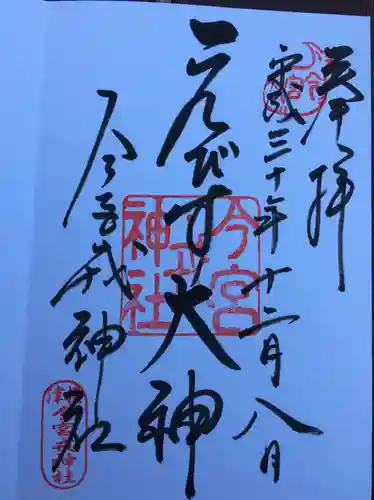 奉拝
平成三十年十二月八日
ゑびす大神
今宮戎神社
今宮戎神社
今宮戎神社